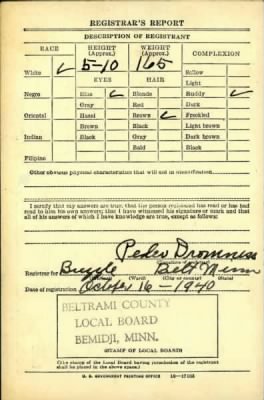 REGISTRAR'S REPORT
DESCRIPTION OF REGISTRANT
RACE HEIGHT (Approx.) WEIGHT (Approx.) COMPLEXION
White ✓ 5-10 165 Sallow
EYES HAIR Light
Negro Blue ✓ Blonde Ruddy ✓
Gray Red Dark
Oriental Hazel Brown ✓ Freckled
Brown Black Light brown
Indian Black Gray Dark brown
Bald Black
Filipino
Other obvious physical characteristics that will aid in identification
I certify that my answers are true; that the person registered has read or has
had read to him his own answers; that I have witnessed his signature or mark and that
all of his answers of which I have knowledge are true, except as follows:
Pedro
(Signature of registrar)
Registrar for Belt Minn
(Ward) (City or county) (State)
Date of registration October 16 - 1940
BELTRAMI COUNTY
LOCAL BOARD
BEMIDJI, MINN.
(STAMP OF LOCAL BOARD)
(The stamp of the Local Board having jurisdiction of the registrant
shall be placed in the above space.)
U. S. GOVERNMENT PRINTING OFFICE 16-17105